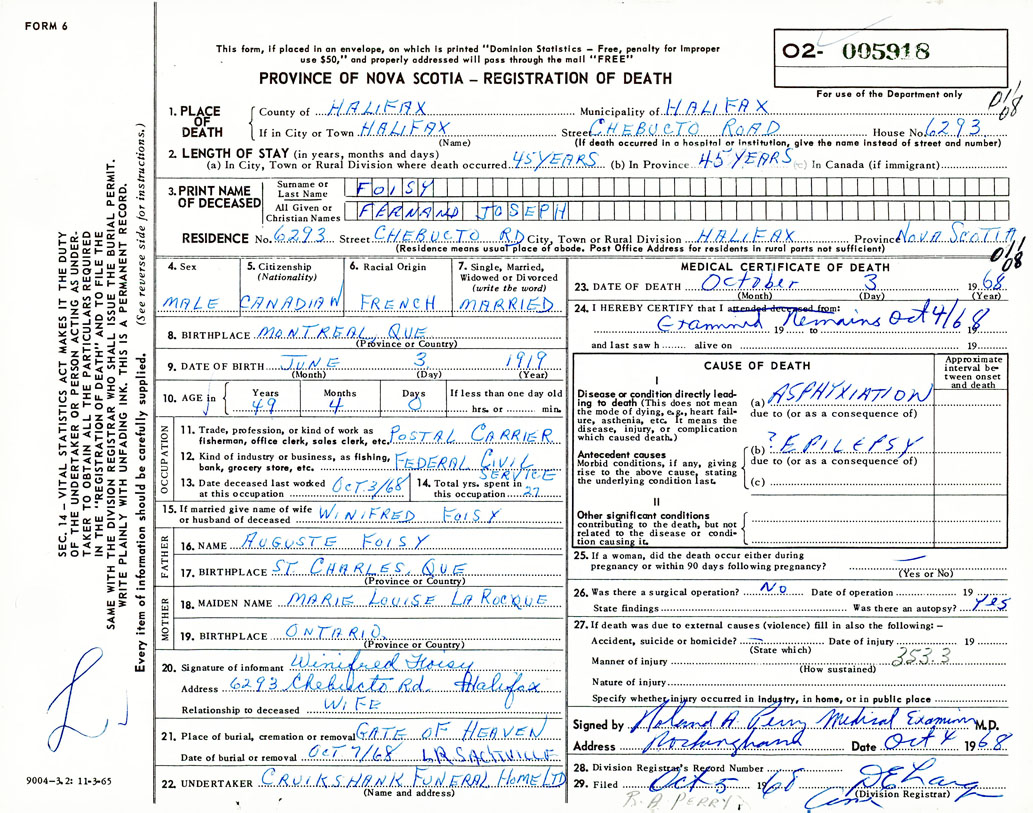 FORM 6
This form, if placed in an envelope, on which is printed "Dominion Statistics – Free, penalty for Improper
use $50," and properly addressed will pass through the mail "FREE"
PROVINCE OF NOVA SCOTIA – REGISTRATION OF DEATH
O2- 005918
For use of the Department only
1. PLACE OF DEATH
County of HALIFAX Municipality of HALIFAX
If in City or Town HALIFAX Street CHEBUCTO ROAD House No. 6293
(Name) (If death occurred in a hospital or institution, give the name instead of street and number)
2. LENGTH OF STAY (in years, months and days)
(a) In City, Town or Rural Division where death occurred 45 YEARS (b) In Province 45 YEARS (c) In Canada (if immigrant)
3. PRINT NAME OF DECEASED
Surname or Last Name FOISY
All Given or Christian Names FERNAND JOSEPH
RESIDENCE No. 6293 Street CHEBUCTO RD City, Town or Rural Division HALIFAX Province NOVA SCOTIA
(Residence means usual place of abode. Post Office Address for residents in rural parts not sufficient)
4. Sex
MALE
5. Citizenship (Nationality)
CANADIAN
6. Racial Origin
FRENCH
7. Single, Married, Widowed or Divorced (write the word)
MARRIED
8. BIRTHPLACE MONTREAL, QUE
(Province or Country)
9. DATE OF BIRTH JUNE 3 1919
(Month) (Day) (Year)
10. AGE in Years 49 Months 4 Days 0 If less than one day old hrs. or min.
OCCUPATION
11. Trade, profession, or kind of work as fisherman, office clerk, sales clerk, etc. POSTAL CARRIER
12. Kind of industry or business, as fishing, bank, grocery store, etc. FEDERAL CIVIL SERVICE
13. Date deceased last worked at this occupation OCT 3/68
14. Total yrs. spent in this occupation 27
15. If married give name of wife or husband of deceased WINIFRED FOISY
FATHER
16. NAME AUGUSTE FOISY
17. BIRTHPLACE ST CHARLES, QUE
(Province or Country)
MOTHER
18. MAIDEN NAME MARIE LOUISE LAROCQUE
19. BIRTHPLACE ONTARIO.
(Province or Country)
20. Signature of informant Winifred Foisy
Address 6293 Chebucto Rd. Halifax
Relationship to deceased WIFE
21. Place of burial, cremation or removal GATE OF HEAVEN
Date of burial or removal OCT 7/68 LR. SACKVILLE
22. UNDERTAKER CRUIKSHANK FUNERAL HOME LTD
(Name and address)
MEDICAL CERTIFICATE OF DEATH
23. DATE OF DEATH October 3 1968
(Month) (Day) (Year)
24. I HEREBY CERTIFY that I attended deceased from:
Examined 19 to Remains Oct 4/68 19
and last saw h alive on 19
CAUSE OF DEATH
Approximate interval between onset and death
I
Disease or condition directly leading to death (This does not mean the mode of dying, e.g., heart failure, asthenia, etc. It means the disease, injury, or complication which caused death.)
(a) ASPHYXIATION
due to (or as a consequence of)
Antecedent causes
Morbid conditions, if any, giving rise to the above cause, stating the underlying condition last.
(b) ? EPILEPSY
due to (or as a consequence of)
(c)
II
Other significant conditions
contributing to the death, but not related to the disease or condition causing it.
25. If a woman, did the death occur either during
pregnancy or within 90 days following pregnancy? —
(Yes or No)
26. Was there a surgical operation? NO Date of operation 19
State findings Was there an autopsy? Yes
27. If death was due to external causes (violence) fill in also the following: –
Accident, suicide or homicide? — Date of injury 19
(State which)
353.3
Manner of injury
(How sustained)
Nature of injury
Specify whether injury occurred in industry, in home, or in public place
Signed by Roland A. Perry Medical Examiner M.D.
Address Rockingham Date Oct 4 1968
28. Division Registrar's Record Number
29. Filed Oct 5 1968
(Division Registrar)
R. A. PERRY
SEC. 14 – VITAL STATISTICS ACT MAKES IT THE DUTY
OF THE UNDERTAKER OR PERSON ACTING AS UNDER-
TAKER TO OBTAIN ALL THE PARTICULARS REQUIRED
IN THE "REGISTRATION OF DEATH" AND TO FILE THE
SAME WITH THE DIVISION REGISTRAR WHO SHALL ISSUE THE BURIAL PERMIT.
WRITE PLAINLY WITH UNFADING INK. THIS IS A PERMANENT RECORD.
Every item of information should be carefully supplied. (See reverse side for instructions.)
9004-3.2: 11-3-65